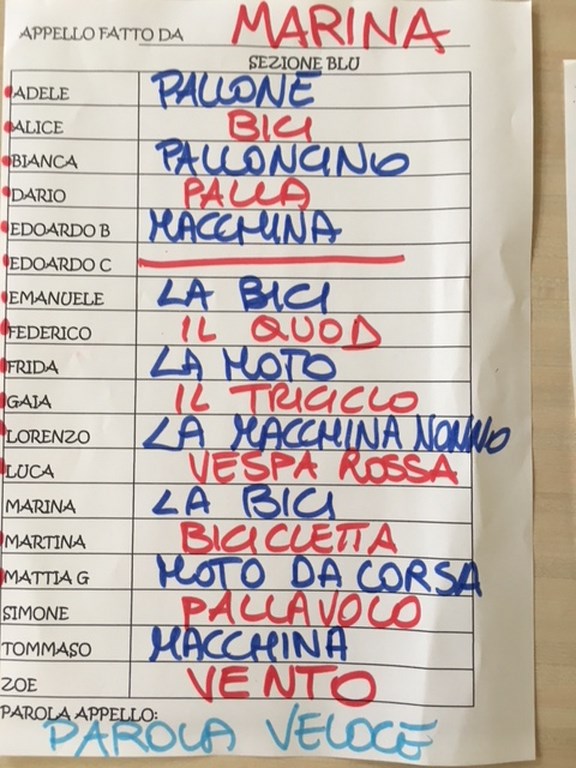 APPELLO FATTO DA MARINA
SEZIONE BLU
ADELE PALLONE
ALICE BICI
BIANCA PALLONCINO
DARIO PALLA
EDOARDO B MACCHINA
EDOARDO C
EMANUELE LA BICI
FEDERICO IL QUOD
FRIDA LA MOTO
GAIA IL TRICICLO
LORENZO LA MACCHINA NONNO
LUCA VESPA ROSSA
MARINA LA BICI
MARTINA BICICLETTA
MATTIA G MOTO DA CORSA
SIMONE PALLAVOLO
TOMMASO MACCHINA
ZOE VENTO
PAROLA APPELLO:
PAROLA VELOCE